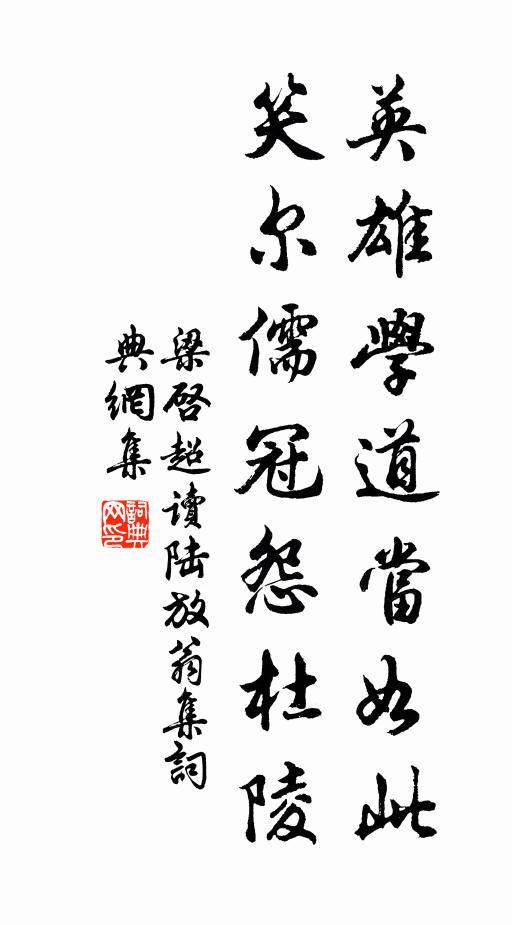 英雄學道當如此
笑尔儒冠怨杜陵
梁啓超讀陸放翁集詞
典網集
詞典
网印